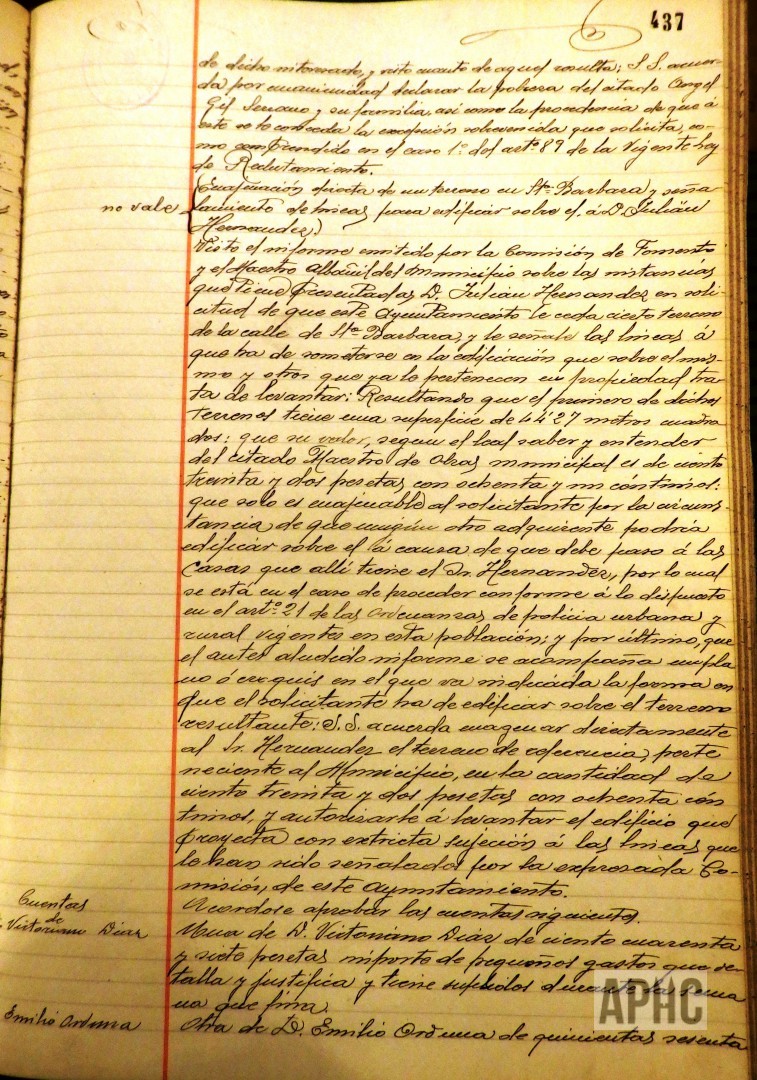 437
de dicho interesado, y visto cuanto de aquel resulta; S.S. acuer-
da por unanimidad declarar la pobreza del citado Angel
Gil Serrano y su familia, así como la procedencia de que á
este se le conceda la excepción sobrevenida que solicita, co-
mo comprendido en el caso 1º del artº 87 de la vigente Ley
de Reclutamiento.
(Enajenación directa de un terreno en Stª Barbara y seña-
no vale
lamiento de lineas para edificar sobre el, á D. Julián
Hernandez.)
Visto el informe emitido por la Comisión de Fomento
y el Maestro Albañil del Municipio sobre las instancias
que tiene presentadas D. Julián Hernandez en soli-
citud de que este Ayuntamiento le ceda cierto terreno
de la calle de Stª Barbara, y le señale las lineas á
que ha de someterse en la edificación que sobre el mis-
mo y otros que ya le pertenecen en propiedad tra-
ta de levantar: Resultando que el primero de dichos
terrenos tiene una superficie de 44'27 metros cuadra
dos: que su valor, segun el leal saber y entender
del citado Maestro de Obras municipal es de ciento
treinta y dos pesetas con ochenta y un céntimos:
que solo es enajenable al solicitante por la circuns-
tancia de que ningún otro adquirente podría
edificar sobre el á causa de que debe paso á las
casas que allí tiene el Sr. Hernandez, por lo cual
se está en el caso de proceder conforme á lo dispuesto
en el artº 21 de las Ordenanzas de policia urbana y
rural vigentes en esta población; y por último, que
el antes aludido informe se acompaña un pla
no ó croquis en el que va indicada la forma en
que el solicitante ha de edificar sobre el terreno
resultante: S.S. acuerda enagenar directamente
al Sr. Hernandez el terreno de referencia, perte
neciente al Municipio, en la cantidad de
ciento treinta y dos pesetas con ochenta cén
timos, y autorizarle á levantar el edificio que
proyecta con extricta sujeción á las lineas que
le han sido señaladas por la expresada Co-
misión de este Ayuntamiento.
Acordose aprobar las cuentas siguientes.
Cuentas
de
Victoriano Diaz
Una de D. Victoriano Diaz de ciento cuarenta
y siete pesetas importe de pequeños gastos que de-
talla y justifica y tiene suplidos durante la sema
na que fina.
Emilio Orduna
Otra de D. Emilio Orduna de quinientas sesenta
APHC